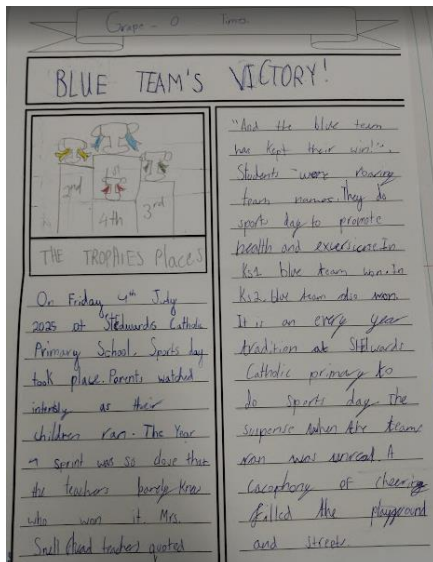 Grape - O Times
BLUE TEAM'S VICTORY!
1st
2nd
3rd
4th
THE TROPHIES Places
On Friday 4th July
2025 at StEdwards Catholic
Primary School. Sports day
took place. Parents watched
intently as their
children ran. The Year
sprint was so close that
the teachers barely knew
who won it. Mrs.
Snell (head teacher) quoted
"And the blue team
has kept their win!".
Students were roaring
team names. They do
sports day to promote
health and In
Ks1 blue team won. In
Ks2, blue team also won.
It is an every year
tradition at StEdwards
Catholic primary to
do sports day. The
suspense when the teams
ran was unreal. A
Cacophony of cheering
filled the playground
and street.